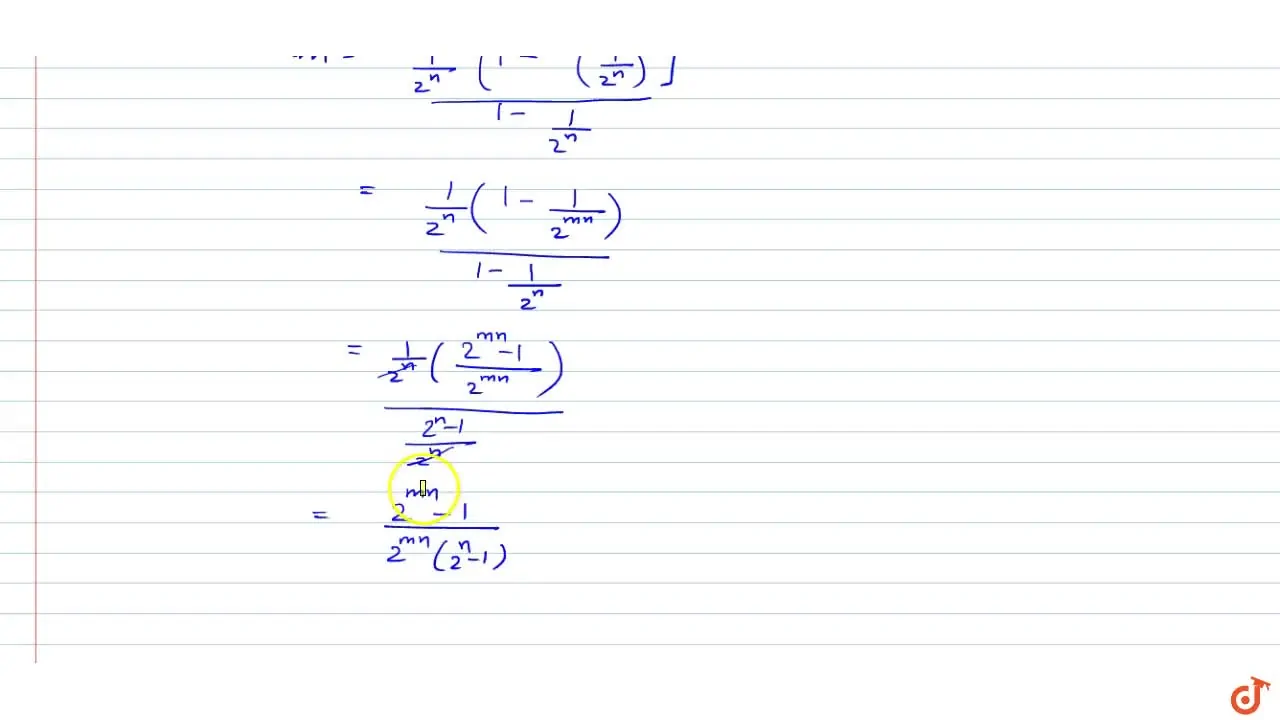 1/2^n (1 - (1/2^n)]
1 - 1/2^n
= 1/2^n (1 - 1/2^mn)
1 - 1/2^n
= 1/2^n (2^mn - 1 / 2^mn)
2^n - 1 / 2^n
= 2^mn - 1
2^mn (2^n - 1)